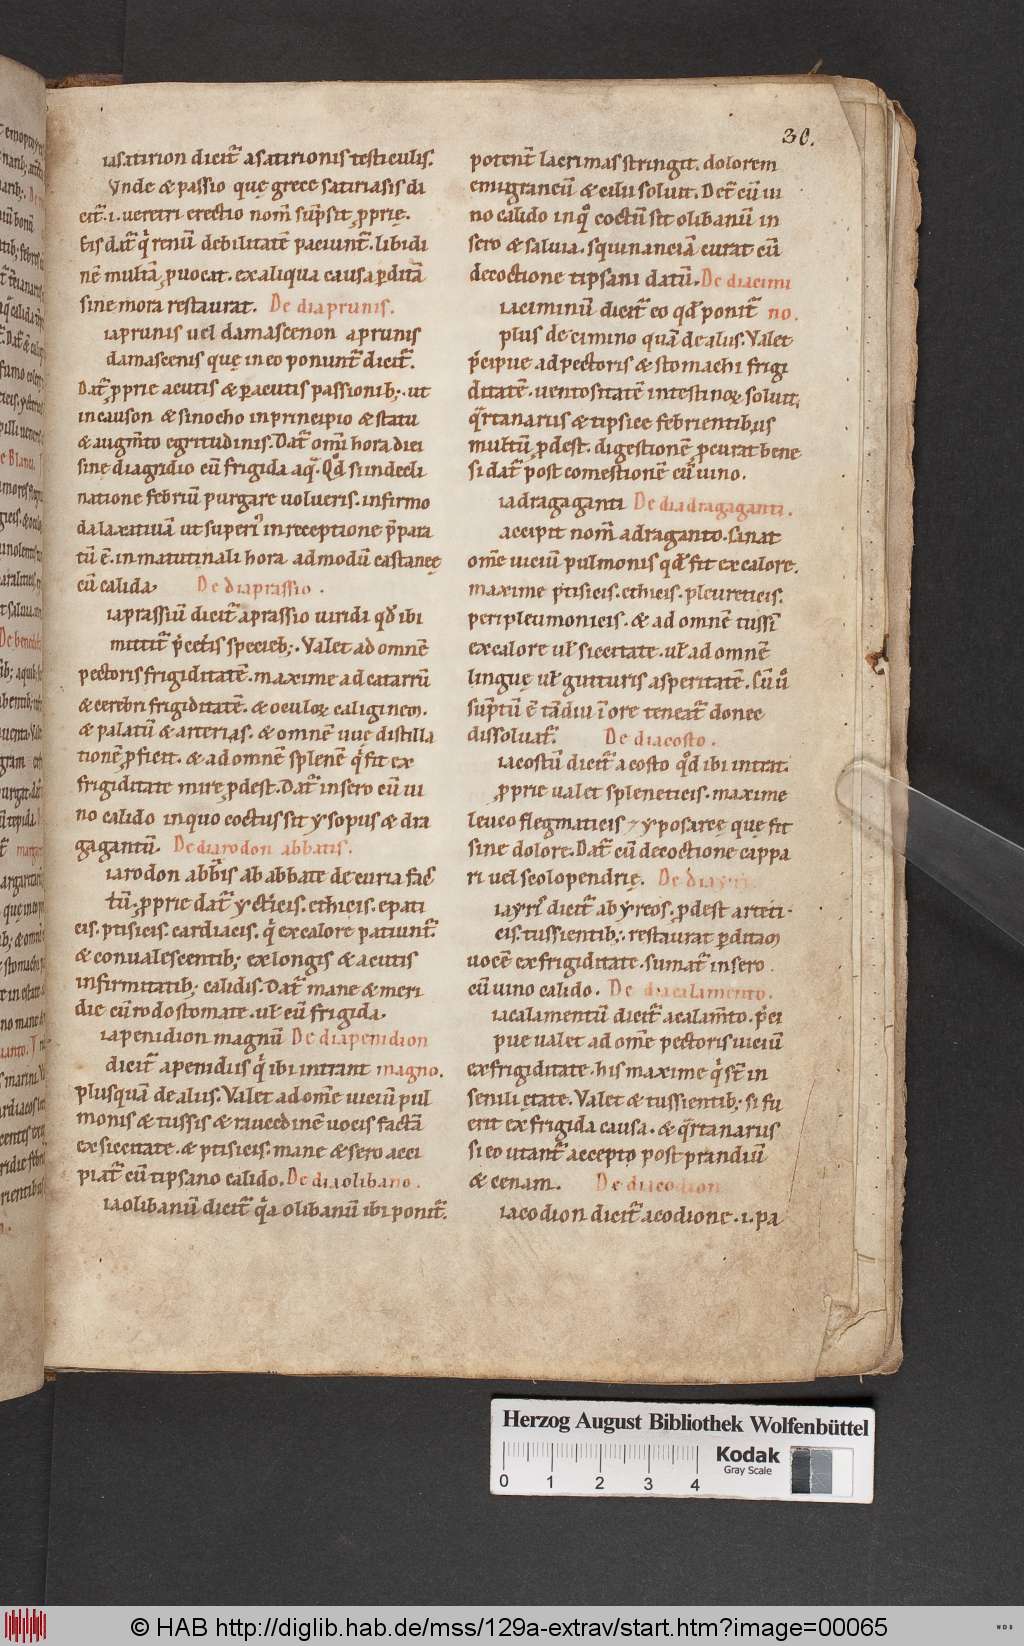 30.
iasatirion dicit̄ a satirionis testiculis.
Vnde & passio quę grece satiriasis di
cit̄ .i. ueretri erectio nom̄ sūpsit ꝓprię.
Eis dat̄ q̇ renū debilitatē paciunt̄. libidi
nē multā ꝓuocat. ex aliqua causa ꝑditā
sine mora restaurat. De diaprunis.
iaprunis uel damascenon a prunis
damascenis quę in eo ponunt̄ dicit̄.
Dat̄ ꝓprie acutis & ꝑacutis passionib;. ut
in causon & sinocho in principio & statu
& augm̄to egritudinis. Dat̄ om̄i hora diei
sine diagridio cū frigida aq̄. Qd̄ si in decli
natione febriū purgare uolueris. infirmo
da laxatiuā ut superi᷒ in receptione p̄para
tū ē. in matutinali hora ad modū castaneę
cū calida. De diaprassio.
iaprassiū dicit̄ a prassio uirida qd̄ ibi
mittit̄ p̄ cet̄is specieb;. Valet ad omnē
pectoris frigiditatē. maxime ad catarrū
& cerebri frigiditatē. & oculoꝝ caliginem.
& palatū & arterias. & omnē uuę distilla
tionē ꝓficit. & ad omnē splenē q̇ fit ex
frigiditate mirę ꝓdest. Dat̄ in sero cū ui
no calido in quo coctus sit ysopus & dra
gagantū. De diarodon abbatis.
iarodon abb̄is ab abbate de curia fac̄
tū. ꝓprie dat̄ yct̄icis. ethicis. epati
cis. ptisicis. cardiacis. q̇ ex calore patiunt̄.
& conualescentib; ex longis & acutis
infirmitatib; calidis. Dat̄ mane & meri
die cū rodostomate. ul̄ cū frigida.
iapenidion magnū De diapenidion
dicit̄ a penidiis q̇ ibi intrant magno.
plusquā de aliis. Valet ad om̄e uiciū pul
monis & tussis & raucedinē uocis factā
ex siccitate. & ptisicis. mane & sero acci
piat̄ cū tipsano calido. De diaolibano.
iaolibanū dicit̄ q̇a olibanū ibi ponit̄.
potent̄ lacrimas stringit. dolorem
emigraneū & cilii soluit. Det̄ cū ui
no calido in q̊ coctū sit olibanū in
sero & saluia. squinanciā curat cū
decoctione tipsani datū. De diacimi
iaciminū dicit̄ eo qd̄ ponit̄ no.
plus de cimino quā de aliis. Valet
p̄cipue ad pectoris & stomachi frigi
ditatē. uentositatē intestinoꝝ soluit;
q̄rtanariis & tipsice febrientibus
multū ꝓdest. digestionē ꝓcurat bene
si dat̄ post comestionē cū uino.
iadragaganti De diadragaganti.
accipit nom̄ a draganto. Sanat
om̄e uiciū pulmonis qd̄ fit ex calore.
maxime ptisicis. ethicis. pleureticis.
peripleumonicis. & ad omnē tussī
ex calore ul̄ siccitate. ul̄ ad omnē
linguę ul̄ gutturis asperitatē. Cū u̇
sūptū ē tādiu ī ore teneat̄ donec
dissoluat̄. De diacosto.
iacostū dicit̄ a costo qd̄ ibi intrat.
ꝓprie ualet spleneticis. maxime
leucoflegmaticis ⁊ yposarcę quę fit
sine dolore. Dat̄ cū decoctione cappa
ri uel scolopendrię. De diayri
iayri᷒ dicit̄ ab yreos. ꝓdest arteti
cis. tussientib;. restaurat ꝑditam
uocē ex frigiditate. sumat̄ in sero.
cū uino calido. De diacalamento.
iacalamentū dicit̄ a calam̄to. p̄ci
pue ualet ad om̄e pectoris uiciū
ex frigiditate. his maxime q̇ st̄ in
senili ętate. Valet & tussientib; si fu
erit ex frigida causa. & q̄rtanariis
si eo utant̄ accepto post prandiū
& cenam. De diacodion
iacodion dicit̄ a codione .i. pa
Herzog August Bibliothek Wolfenbüttel
0 1 2 3 4
Kodak
Gray Scale
© HAB http://diglib.hab.de/mss/129a-extrav/start.htm?image=00065